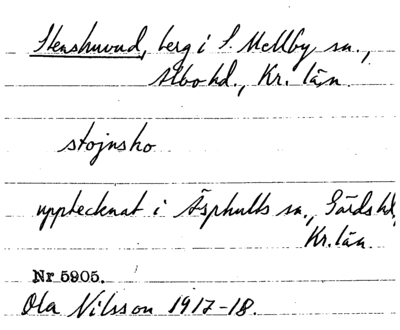 Stenshuvud, berg i S. Mellby sn.,
Albo hd., Kr. län.
stojnsho
upptecknat i Äsphults sn., Gärds hd,
Kr. län.
Nr 5905.
Ola Nilsson 1917-18.